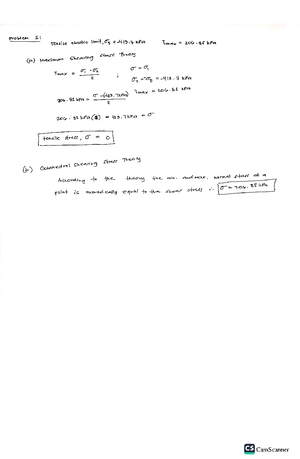 Problem 2:
Tensile elastic limit, σy = -413.7 kPa τmax = 206.85 kPa
(a) Maximum Shearing Stress Theory
τmax = σ1 - σ2 / 2 ; σ = σ1
σ2 = σy = -413.7 kPa
206.85 kPa = σ-(413.7 kPa) / 2 τmax = 206.85 kPa
206.85 kPa (2) = 413.7 kPa = σ
tensile stress, σ = 0
(b) Octahedral Shearing Stress Theory
According to the theory the min. and max. normal stress at a
point is numerically equal to the shear stress ∴ σ = 206.85 kPa
CS CamScanner